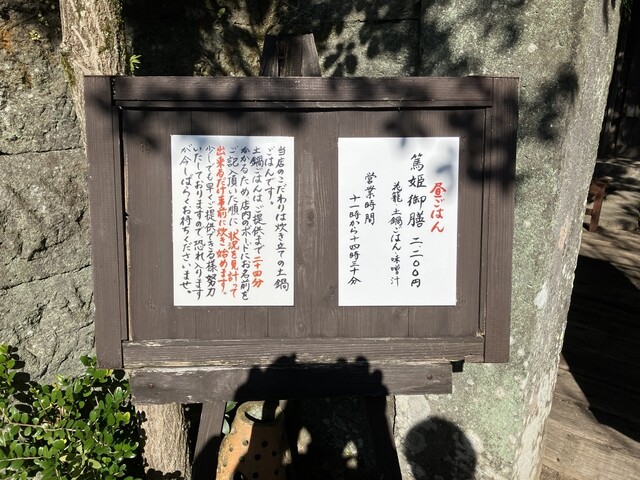 昼ごはん
篤姫御膳 二二〇〇円
花籠 土鍋ごはん 味噌汁
営業時間
十一時から十四時三十分
当店のこだわりは炊き立ての土鍋
ごはんです。
土鍋ごはんは、ご提供まで二十四分
かかるため店内のボードにお名前を
ご記入頂いた順に状況を見計って
出来るだけ事前に炊き始めます。
少しでも早くご提供できる様努力
いたしておりますので恐れ入ります
が今しばらくお待ちくださいませ。